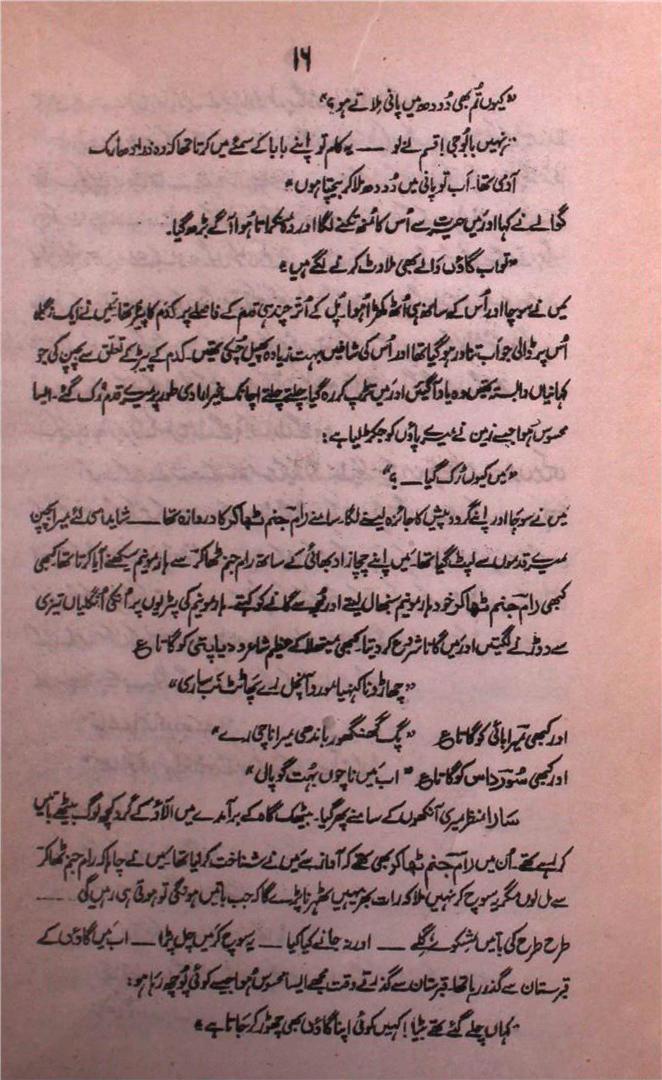 ۱۶
"کیوں تم بھی دُودھ میں پانی ملاتے ہو؟"
"نہیں بابُوجی! قسم لے لو — یہ کام تو اپنے بابا کے سمئے میں کرتا تھا کہ وہ ذرا دھارمک
آدمی تھا۔ اَب تو پانی میں دُودھ ملا کر بیچتا ہوں"
گوالے نے کہا اور میں حیرت سے اُس کا مُنھ تکنے لگا اور وہ مسکراتا ہوا آگے بڑھ گیا۔
"تو اب گاؤں والے بھی ملاوٹ کرنے لگے ہیں"
میں نے سوچا اور اُس کے ساتھ ہی اُٹھ کھڑا ہوا۔ پُل کے اُتر چند ہی قدم کے فاصلے پر کدم کا پیڑ تھا میں نے ایک نگاہ
اُس پر ڈالی جو اَب تناور ہو گیا تھا اور اُس کی شاخیں بہت زیادہ پھیل چکی تھیں۔ کدم کے پیڑ کے تعلق سے بچپن کی جو
کہانیاں وابستہ تھیں وہ یاد آگئیں اور میں تڑپ کر رہ گیا چلتے چلتے اچانک غیر ارادی طور پر میرے قدم رُک گئے۔ ایسا
محسوس ہوا جیسے زمین نے میرے پاؤں کو جکڑ لیا ہے:
"میں کیوں رُک گیا — ؟"
میں نے سوچا اور اپنے گرد و پیش کا جائزہ لینے لگا۔ سامنے رام جنم ٹھاکر کا دروازہ تھا — شاید اسی لئے میرا بچپن
میرے قدموں سے لپٹ گیا تھا۔ میں اپنے چچازاد بھائی کے ساتھ رام جنم ٹھاکر سے ہارمونیم سیکھنے آیا کرتا تھا کبھی
کبھی رام جنم ٹھاکر خود ہارمونیم سنبھال لیتے اور مجھ سے گانے کو کہتے۔ ہارمونیم کی پٹریوں پر اُنکی اُنگلیاں تیزی
سے دوڑنے لگتیں اور میں گانا شروع کر دیتا۔ کبھی میتھلا کے عظیم شاعر ودیا پتی کو گاتا ع
"چھاڑو نا کنہیا مورو آنچل اے چاٹت نب ساری"
اور کبھی میرا بائی کو گاتا ع "پگ گھنگھور باندھی میرا ناچی رے"
اور کبھی سُورداس کو گاتا ع "اب میں ناچوں بہُت گوپال"
سارا منظر میری آنکھوں کے سامنے پھر گیا۔ بیٹھک گاہ کے برآمدے میں الاؤ کے گرد کچھ لوگ بیٹھے باتیں
کر رہے تھے۔ اُن میں رام جنم ٹھاکر بھی تھے کہ آواز سے میں نے شناخت کر لیا تھا میں نے چاہا کہ رام جنم ٹھاکر
سے مل لوں مگر یہ سوچ کر نہیں ملا کہ رات بھر یہیں ٹھہرنا پڑے گا کہ جب باتیں ہونگی تو ہوتی ہی رہیں گی —
طرح طرح کی باتیں شکوے گلے — اور نہ جانے کیا کیا — یہ سوچ کر میں چل پڑا — اب میں گاؤں کے
قبرستان سے گذر رہا تھا۔ قبرستان سے گذرتے وقت مجھے ایسا محسوس ہوا جیسے کوئی پُوچھ رہا ہو:
"کہاں چلے گئے تھے بیٹا! کہیں کوئی اپنا گاؤں بھی چھوڑ کر جاتا ہے"